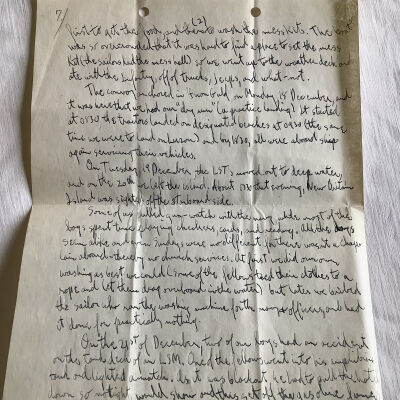 7
(2)
first to get the food, and then to wash the mess kits. The boat
was so overcrowded that it was hard to find a place to set the mess
kit (the sailors had the mess hall) so we went up to the weather deck and
ate with the Infantry, off of trucks, jeeps, and what-not.
The convoy anchored in on Monday, 18 December, and
it was here that we had our "dry run" (a practice landing). It started
at 0830 the tractors landed on designated beaches at 0930 (the same
time we were to land on Luzon) and by 1630, all were aboard ship
again servicing their vehicles.
On Tuesday, 19 December, the LST's moved out to deep water,
and on the 20th we left the island. About 1730 that evening, New Britain
Island was sighted off the starboard side.
Some of us pulled gun-watch with the navy, while most of the
boys spent time playing checkers, cards, and reading. All the days
seem alike and even Sundays were no different, for there wasn't a Chap-
lain aboard - thereby no church services. At first we did our own
washing as best we could (some of the fellows tied their clothes to a
rope and let them drag overboard in the water) but later we bribed
the sailor who ran the washing machine for the navy officers, and had
it done for practically nothing.
On the 21st of December, two of our boys had an accident
on the tank deck of an LSM. One of the fellows went into his
tank and lighted a match. As it was blackout he had to pull the hatch
down so no light would show and this set off the gasoline fumes